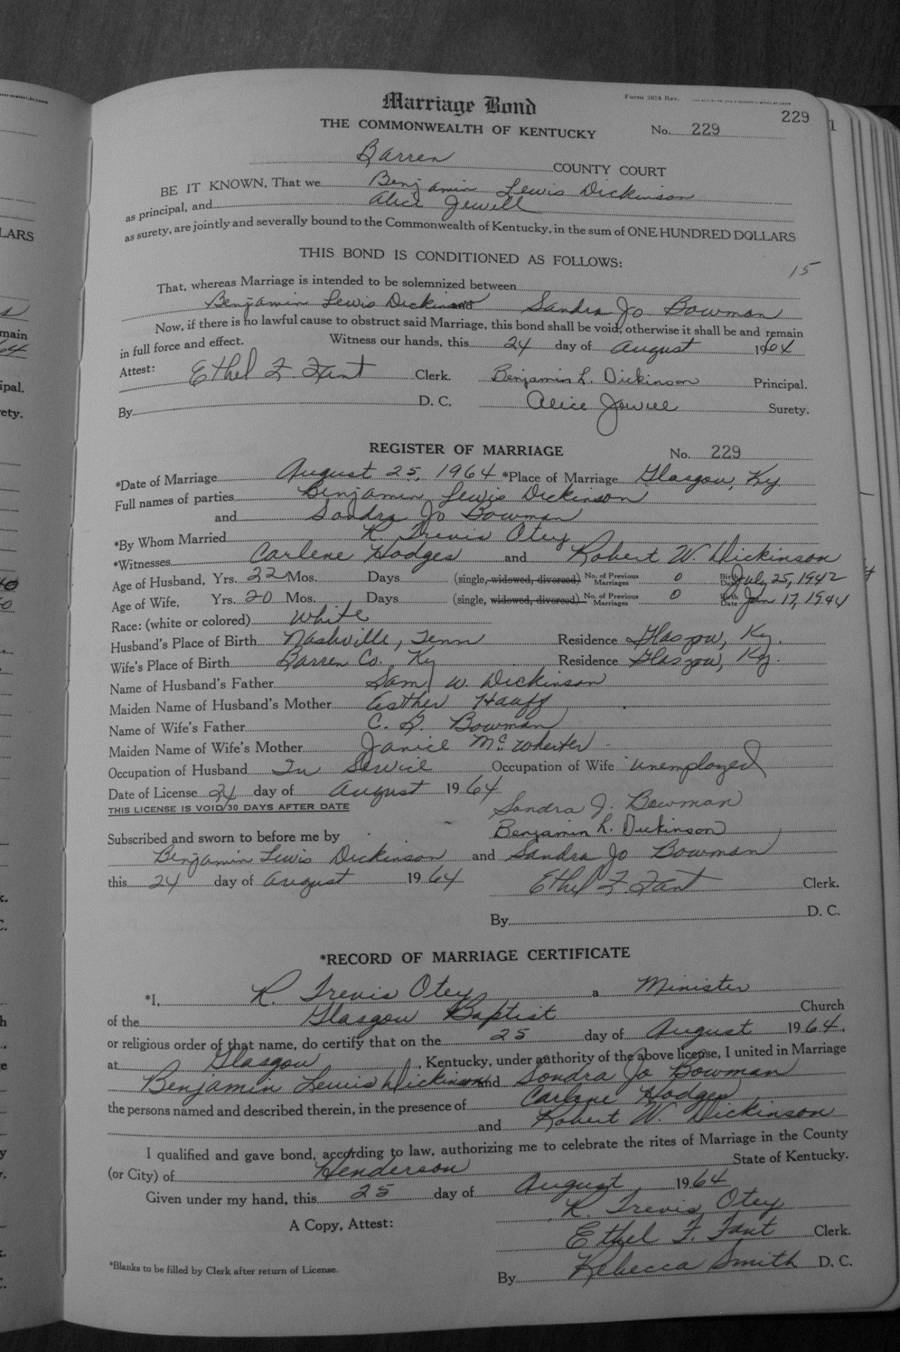 Marriage Bond
Form 202A Rev.
229
THE COMMONWEALTH OF KENTUCKY No. 229
Barren COUNTY COURT
BE IT KNOWN, That we Benjamin Lewis Dickinson
as principal, and Alice Jewell
as surety, are jointly and severally bound to the Commonwealth of Kentucky, in the sum of ONE HUNDRED DOLLARS
THIS BOND IS CONDITIONED AS FOLLOWS:
15
That, whereas Marriage is intended to be solemnized between
Benjamin Lewis Dickinson and Sandra Jo Bowman
Now, if there is no lawful cause to obstruct said Marriage, this bond shall be void, otherwise it shall be and remain
in full force and effect. Witness our hands, this 24 day of August 1964
Attest: Ethel F. Fant Clerk. Benjamin L. Dickinson Principal.
By D. C. Alice Jewell Surety.
REGISTER OF MARRIAGE No. 229
*Date of Marriage August 25, 1964 *Place of Marriage Glasgow, Ky
Full names of parties Benjamin Lewis Dickinson
and Sandra Jo Bowman
*By Whom Married R. Trevis Otey
*Witnesses Carlene Hodges and Robert W. Dickinson
Age of Husband, Yrs. 22 Mos. Days (single, widowed, divorced) No. of Previous Marriages 0 Birth Date July 25, 1942
Age of Wife, Yrs. 20 Mos. Days (single, widowed, divorced) No. of Previous Marriages 0 Birth Date Jan 17, 1944
Race: (white or colored) White
Husband's Place of Birth Nashville, Tenn Residence Glasgow, Ky.
Wife's Place of Birth Barren Co. Ky Residence Glasgow, Ky.
Name of Husband's Father Sam W. Dickinson
Maiden Name of Husband's Mother Esther Hauff
Name of Wife's Father C. Bowman
Maiden Name of Wife's Mother Janice McWherter
Occupation of Husband In Service Occupation of Wife Unemployed
Date of License 24 day of August 1964
THIS LICENSE IS VOID 30 DAYS AFTER DATE Sandra J. Bowman
Subscribed and sworn to before me by Benjamin L. Dickinson
Benjamin Lewis Dickinson and Sandra Jo Bowman
this 24 day of August 1964 Ethel F. Fant Clerk.
By D. C.
*RECORD OF MARRIAGE CERTIFICATE
*I, R. Trevis Otey a Minister
of the Glasgow Baptist Church
or religious order of that name, do certify that on the 25 day of August 1964,
at Glasgow, Kentucky, under authority of the above license, I united in Marriage
Benjamin Lewis Dickinson and Sandra Jo Bowman
the persons named and described therein, in the presence of Carlene Hodges
and Robert W. Dickinson
I qualified and gave bond, according to law, authorizing me to celebrate the rites of Marriage in the County
(or City) of Henderson State of Kentucky.
Given under my hand, this 25 day of August 1964
R. Trevis Otey
A Copy, Attest: Ethel F. Fant Clerk.
*Blanks to be filled by Clerk after return of License. By Rebecca Smith D. C.